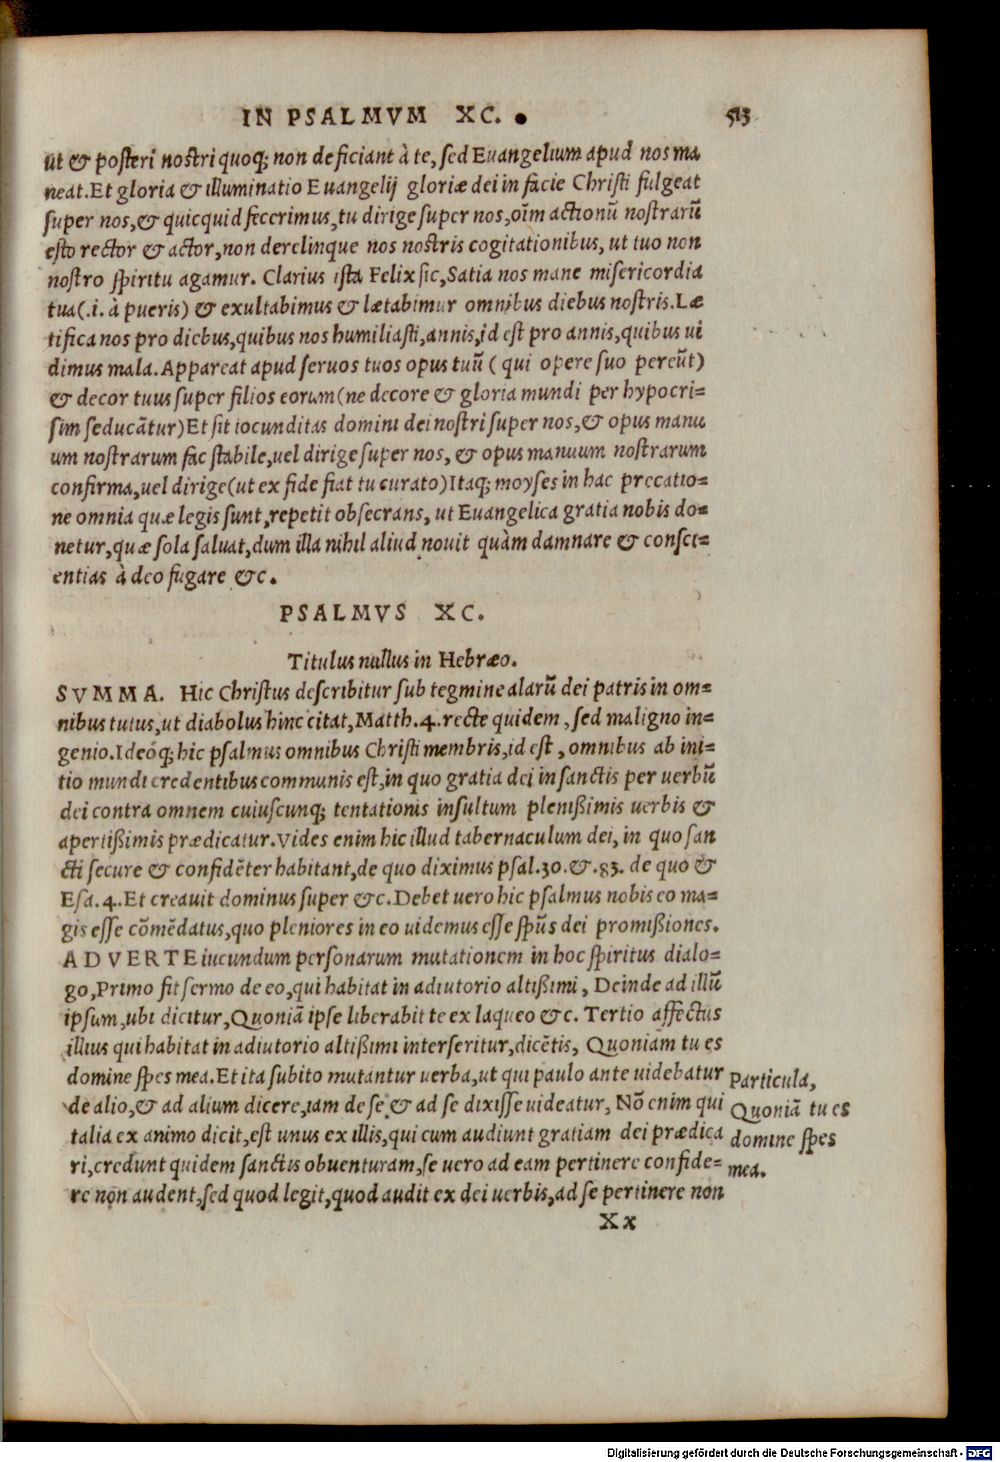 IN PSALMVM XC. 513
ut & posteri nostri quoq; non deficiant à te, sed Euangelium apud nos ma
neat. Et gloria & illuminatio Euangelij gloriæ dei in facie Christi fulgeat
super nos, & quicquid fecerimus, tu dirige super nos, oĩm actionũ nostrarũ
esto rector & actor, non derelinque nos nostris cogitationibus, ut tuo non
nostro spiritu agamur. Clarius ista Felix sic, Satia nos mane misericordia
tua (.i. à pueris) & exultabimus & lætabimur omnibus diebus nostris. Læ
tifica nos pro diebus, quibus nos humiliasti, annis, id est pro annis, quibus ui
dimus mala. Appareat apud seruos tuos opus tuũ (qui opere suo pereũt)
& decor tuus super filios eorum (ne decore & gloria mundi per hypocri=
sim seducãtur) Et sit iocunditas domini dei nostri super nos, & opus manu
um nostrarum fac stabile, uel dirige super nos, & opus manuum nostrarum
confirma, uel dirige (ut ex fide fiat tu curato) Itaq; moyses in hac precatio=
ne omnia quæ legis sunt, repetit obsecrans, ut Euangelica gratia nobis do=
netur, quæ sola saluat, dum illa nihil aliud nouit quàm damnare & consci=
entias à deo fugare &c.
PSALMVS XC.
Titulus nullus in Hebræo.
SVMMA. Hic Christus describitur sub tegmine alarũ dei patris in om=
nibus tutus, ut diabolus hinc citat, Matth.4. recte quidem, sed maligno in=
genio. Ideóq; hic psalmus omnibus Christi membris, id est, omnibus ab ini=
tio mundi credentibus communis est, in quo gratia dei in sanctis per uerbũ
dei contra omnem cuiuscunq; tentationis insultum plenißimis uerbis &
apertißimis prædicatur. Vides enim hic illud tabernaculum dei, in quo san
cti secure & confidẽter habitant, de quo diximus psal.30. & .83. de quo &
Esa.4. Et creauit dominus super &c. Debet uero hic psalmus nobis eo ma=
gis esse cõmẽdatus, quo pleniores in eo uidemus esse sp̃us dei promißiones.
ADVERTE iucundum personarum mutationem in hoc spiritus dialo=
go, Primo fit sermo de eo, qui habitat in adiutorio altißimi, Deinde ad illũ
ipsum, ubi dicitur, Quoniã ipse liberabit te ex laqueo &c. Tertio affectus
illius qui habitat in adiutorio altißimi interseritur, dicẽtis, Quoniam tu es
domine spes mea. Et ita subito mutantur uerba, ut qui paulo ante uidebatur
de alio, & ad alium dicere, iam de se & ad se dixisse uideatur, Nõ enim qui
talia ex animo dicit, est unus ex illis, qui cum audiunt gratiam dei prædica
ri, credunt quidem sanctis obuenturam, se uero ad eam pertinere confide=
re non audent, sed quod legit, quod audit ex dei uerbis, ad se pertinere non
Particula,
Quoniã tu es
domine spes
mea.
Xx
Digitalisierung gefördert durch die Deutsche Forschungsgemeinschaft - DFG